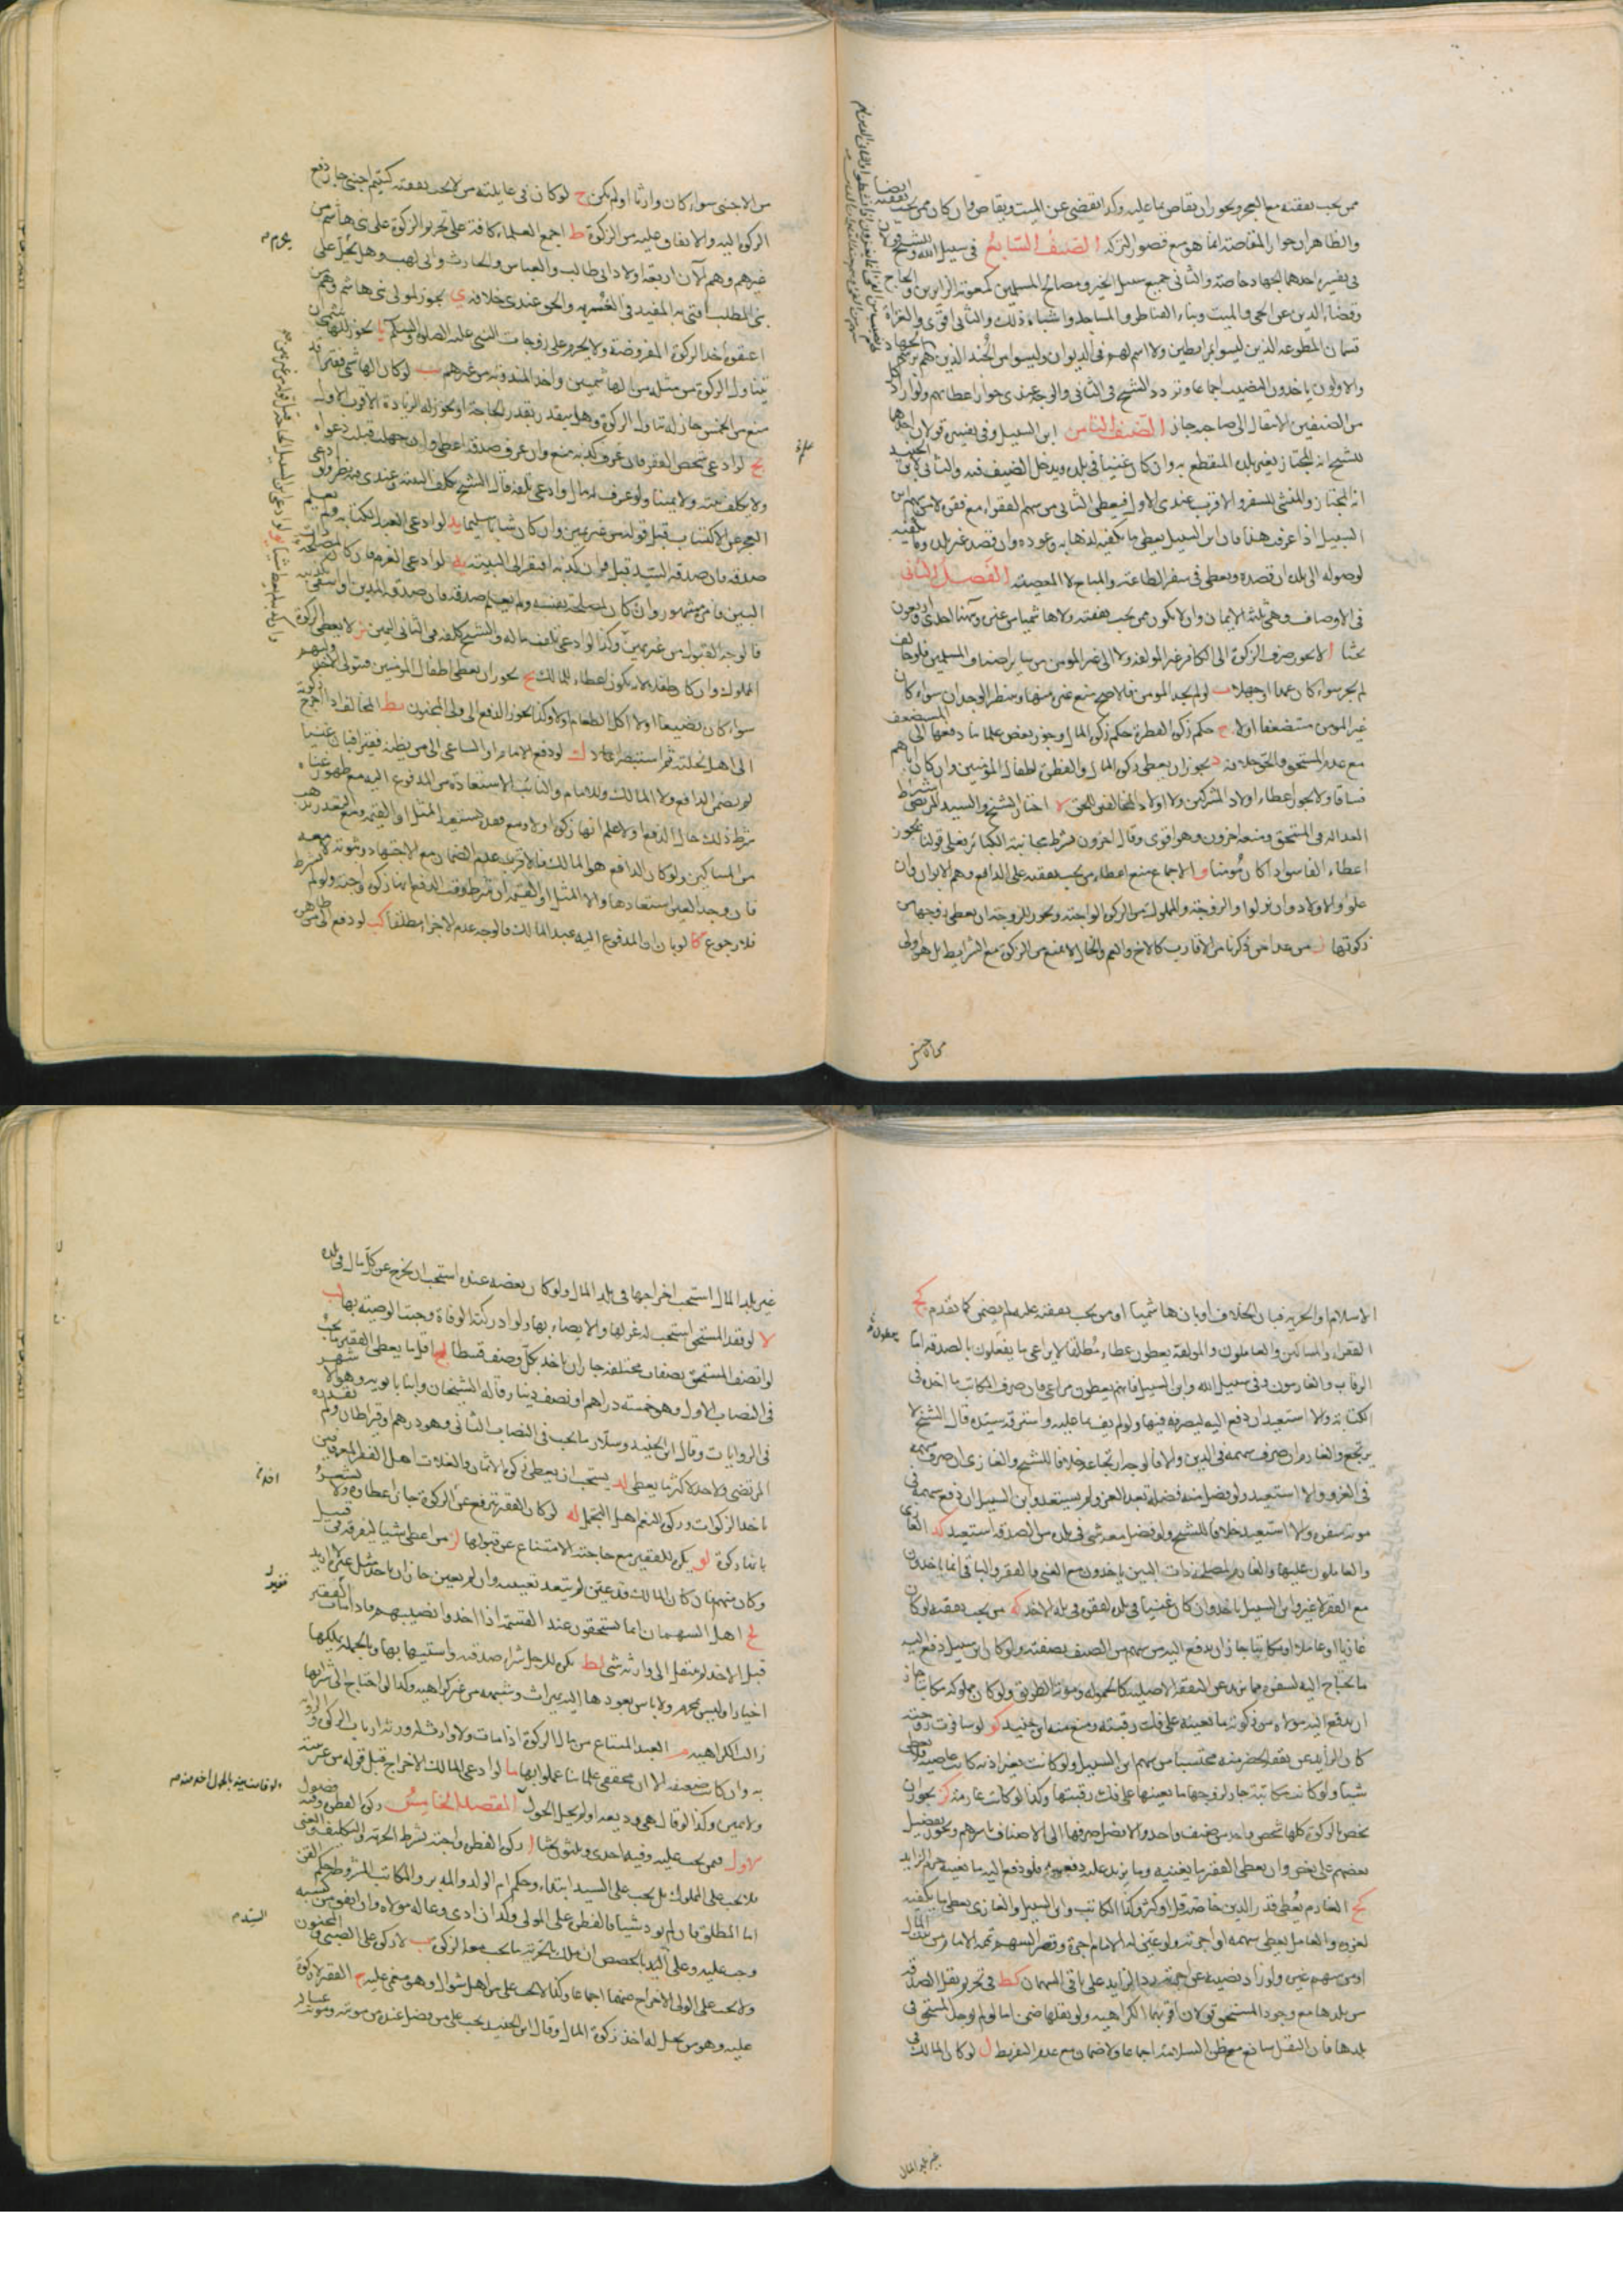 ممن يجب نفقته مع العجز ويجوز ان يقاص بما عليه وكذا يقضى عن الميت ويقاص وان كان ممن يجب نفقته
والظاهر ان جواز المقاصة انما هو مع قصور التركة الصنف السابع في سبيل الله وللشيخ
في تفسيره احدهما الجهاد خاصة والثاني جميع سبيل الخير ومصالح المسلمين كمعونة الزايرين والحاج
وقضاء الدين عن الحي والميت وبناء القناطر والمساجد واشباه ذلك والثاني اقوى والغزاة
قسمان المطوعة الذين ليسوا بمرابطين ولا اسم لهم في الديوان وليسوا من الجند الذين هم برسم الجهاد
والاولون ياخذون النصيب اجماعا وتردد الشيخ في الثاني والوجه عندي جواز اعطائهم ولو اراد كل
من الصنفين الانتقال الى صاحبه جاز الصنف الثامن ابن السبيل وفي تفسيره قولان احدهما
للشيخ انه المجتاز بغير بلده المنقطع به وان كان غنيا في بلده ويدخل الضيف فيه والثاني لابن الجنيد
انه المجتاز والمنشئ للسفر والاقرب عندي الاول فيعطى الثاني من سهم الفقراء مع فقره لا من سهم ابن
السبيل اذا عرف هذا فان ابن السبيل يعطى ما يكفيه لذهابه وعوده وان قصد غير بلده وما يكفيه
لوصوله الى بلده ان قصده ويعطى في سفر الطاعة والمباح لا المعصية الفصل الثاني
في الاوصاف وهي ثلثة الايمان وان لا يكون ممن يجب نفقته ولا هاشميا من غيره وهنا احد واربعون
بحثا ا لا يجوز صرف الزكوة الى الكافر غير المولفة ولا الى غير المومن من ساير اصناف المسلمين فلو خالف
لم يجز سواء كان عمدا او جهلا ب لو لم يجد المومن فالاصح منع غيره منها وينتظر الوجدان سواء كان
غير المومن مستضعفا او لا ج حكم زكوة الفطرة حكم زكوة المال وجوز بعض علمائنا دفعها الى المستضعف
مع عدم المستحق والحق خلافه د يجوز ان يعطى زكوة المال والفطرة لطفال المؤمنين وان كان اباهم
فساقا ولا يجوز اعطاء اولاد المشركين ولا اولاد المخالفين للحق ه اختار الشيخ والسيد المرتضى اشتراط
العدالة في المستحق ومنعه اخرون وهو اقوى وقال اخرون يشترط مجانبة الكبائر فعلى قولنا يجوز
اعطاء الفاسق اذا كان مومنا و الاجماع منع اعطاء من يجب نفقته على الدافع وهم الابوان وان
علوا والاولاد وان نزلوا والزوجة والمملوك من الزكوة الواجبة ويجوز للزوجة ان يعطى زوجها من
زكوتها ز من عدا من ذكرنا من الاقارب كالاخ والعم والخال لا يمنع من الزكوة مع الشرايط بل هو اولى
من الاجنبي سواء كان وارثا او لم يكن ح لو كان في عايلته من لا يجب نفقته كيتيم اجنبي جاز دفع
الزكوة اليه والانفاق عليه من الزكوة ط اجمع العلماء كافة على تحريم الزكوة على بني هاشم من
غيرهم وهم الآن اربعة اولاد ابي طالب والعباس والحارث وابي لهب وهل يحل على
بني المطلب افتى به المفيد في الغرية والحق عندي خلافه ي يجوز لموالي بني هاشم وهم من
اعتقوه اخذ الزكوة المفروضة ولا يحرم على زوجات النبي عليه الصلوة والسلم يا يجوز للهاشمي ان
يتناول الزكوة من مثله من الهاشميين واخذ المندوبة من غيرهم يب لو كان الهاشمي فقيرا قد
منع من الخمس جاز له تناول الزكوة وهل يتقدر بقدر الحاجة او يجوز له الزيادة الاقرب الاول
يج لو ادعى شخص الفقر فان عرف كذبه منع وان عرف صدقه اعطى وان جهل قبلت دعواه
ولا يكلف بينة ولا يمينا ولو عرف له مال وادعى تلفه قال الشيخ يكلف البينة وعندي فيه نظر ولو ادعى
العجز عن الاكتساب قبل قوله من غير يمين وان كان شابا سليما يد لو ادعى العبد الكتابة ولم يعلم
صدقه فان صدقه السيد قبل وان كذبه افتقر الى البينة يه لو ادعى الغرم فان كان لمصلحة ذات
البين فامره مشهور وان كان لمصلحة نفسه ولم يعلم صدقه فان صدقه المدين او انتفى تكذيبه
فالوجه القبول من غير يمين وكذا لو ادعى تلف ماله والشيخ كلفه في الثاني اليمين يز لا يعطى الزكوة
المملوك وان كان طفلا لانه يكون اعطاء للمالك يح يجوز ان يعطى اطفال المومنين فيتولى الاخذ وليهم
سواء كان رضيعا او لا اكل الطعام او لا وكذا يجوز الدفع الى ولي المجنون يط المخالف اذا اخرج زكوته
الى اهل نحلته ثم استبصر اعاد ك لو دفع الامام او الساعي الى من يظنه فقيرا فبان غنيا
لم يضمن الدافع ولا المالك وللامام والنائب الاستعادة من المدفوع اليه مع ظهور غناه
شرط ذلك حال الدفع او لا علم انها زكوة او لا ومع فقده يستعيد المثل او القيمة ومع التعذر يذهب
من المساكين ولو كان الدافع هو المالك فالاقرب عدم الضمان مع الاجتهاد وثبوته لا معه
فان وجد العين استعادها والا المثل او القيمة ان شرط وقت الدفع انها زكوة واجبة ولو لم يشرط
فلا رجوع كا لو بان ان المدفوع اليه عبد المالك فالوجه عدم الاجزاء مطلقا كب لو دفع الى من ظاهره
الاسلام او الحرية فبان الخلاف او بان هاشميا او من يجب نفقته عليه لم يضمن كما تقدم كج
الفقراء والمساكين والعاملون والمولفة يعطون عطاء مطلقا لا يراعى ما يفعلون بالصدقة اما
الرقاب والغارمون وفي سبيل الله وابن السبيل فانهم يعطون مراعى فان صرف المكاتب ما اخذه في
الكتابة والا استعيد ان دفع اليه ليصرفه فيها ولو لم يف بما عليه واسترقه سيده قال الشيخ لا
يرتجع والغارم ان صرف سهمه في الدين والا فالوجه ارتجاعه خلافا للشيخ والغازي ان صرف سهمه
في الغزو والا استعيد ولو فضل منه فضلة بعد الغزو لم يستعد وابن السبيل ان دفع سهمه في
مونة سفره والا استعيد خلافا للشيخ ولو فضل معه شي في بلده من الصدقة استعيد كد الغازي
والعاملون عليها والغارم لمصلحة ذات البين ياخذون مع الغنى والفقر والباقي انما ياخذون
مع الفقر لا غير وابن السبيل ياخذ وان كان غنيا في بلده لفقره في بلد الاخذ كه من يجب نفقته لو كان
غازيا او عاملا او مكاتبا جاز ان يدفع اليه من سهم من الصنف بصفته ولو كان ابن سبيل دفع اليه
ما يحتاج اليه لسفره مما يزيد عن النفقة الاصلية كالحمولة ومونة الطريق ولو كان مملوكه مكاتبا جاز
ان يدفع اليه مولاه من زكوته ما يعينه على فك رقبته ومنع منه ابن جنيد كو لو سافرت زوجته
كان الزايد عن نفقة الحضر منه محتسبا من سهم ابن السبيل ولو كانت بغير اذنه كانت عاصية فلا يعطى
شيئا ولو كانت مكاتبة جاز لزوجها ما يعينها على فك رقبتها وكذا لو كانت غارمة كز يجوز ان
يخص بالزكوة كلها شخص واحد من صنف واحد والافضل صرفها الى الاصناف باسرهم ويجوز تفضيل
بعضهم على بعض وان يعطى الفقير ما يغنيه وما يزيد عليه دفعة فلو دفع اليه ما يغنيه حرم الزايد
كح الغارم يعطى قدر الدين خاصة قل او كثر وكذا الكاتب وابن السبيل والغازي يعطى ما يكفيه
لغزوه والعامل يعطى سهمه او اجرته ولو عين له الامام اجرة وقصر السهم تممه الامام من بيت المال
او من سهم غيره ولو زاد نصيبه عن اجرته رد الزايد على باقي السهمان كط في تحريم نقل الصدقة
من بلدها مع وجود المستحق قولان اقربهما الكراهية ولو نقلها ضمن اما لو لم يوجد المستحق في
بلدها فان النقل سائغ مع ظن السلامة اجماعا ولا ضمان مع عدم التفريط ل لو كان المالك في
غير بلد المال
غير بلد المال استحب اخراجها في بلد المال ولو كان بعضه عنده استحب ان يخرج عن كل مال في بلده
لا لو فقد المستحق استحب له عزلها والايصاء بها ولو ادركته الوفاة وجبت الوصية بها لب
لو اتصف المستحق بصفات مختلفة جاز ان ياخذ بكل وصف قسطا لج اقل ما يعطى الفقير ما يجب
في النصاب الاول وهو خمسة دراهم او نصف دينار قاله الشيخان وابنا بابويه وهو الاشهر
في الروايات وقال ابن الجنيد وسلار ما يجب في النصاب الثاني وهو درهم او قيراطان ولم يقدره
المرتضى ولا حد لاكثر ما يعطى لد يستحب ان يعطى زكوة الاثمان والغلات اهل الفقر المعروفين
باخذ الزكوات وزكوة النعم اهل التجمل له لو كان الفقير يترفع عن الزكوة جاز اعطاؤه ولا يشعر
بانها زكوة لو يكره للفقير مع حاجته الامتناع عن قبولها لز من اعطى شيئا ليفرقه في قبيل
وكان منهم فان كان المالك قد عين لم يتعد تعيينه وان لم يعين جاز ان ياخذ مثل غيره لا ازيد
لح اهل السهمان انما يستحقون عند القسمة اذا اخذوا نصيبهم فاذا مات الفقير
قبل الاخذ لم ينتقل الى وارثه شي لط يكره للرجل شراء صدقته واستيهابها وبالجملة تملكها
اختيارا وليس بمحرم ولا باس بعودها اليه بميراث وشبهه من غير كراهية وكذا لو احتاج الى شرائها
زالت الكراهية م العبد المبتاع من مال الزكوة اذا مات ولا وارث له ورثه ارباب الزكوة والرواية
به وان كانت ضعيفة الا ان محققي علمائنا عملوا بها ما لو ادعى المالك الاخراج قبل قوله من غير بينة
ولا يمين وكذا لو قال هي وديعة او لم يحل الحول المقصد الخامس في زكوة الفطرة وفيه فصول
الاول فيمن يجب عليه وفيه احدى وثلثون بحثا ا زكوة الفطرة واجبة بشرط الحرية والتكليف والغنى
فلا يجب على المملوك بل يجب على السيد ابتداء وحكم ام الولد والمدبر والمكاتب المشروط حكم القن
اما المطلق فان لم يود شيئا فالفطرة على المولى وكذا ان ادى وعاله مولاه وان انفق من كسبه
وجب عليه وعلى السيد بالحصص ان ملك بالحرية ما يجب معه الزكوة ب لا زكوة على الصبي والمجنون
ولا يجب على الولي الاخراج عنهما اجماعا وكذا لا يجب على من اهل شوال وهو مغمى عليه ج الفقير لا زكوة
عليه وهو من يحل له اخذ زكوة المال وقال ابن الجنيد يجب على من فضل عنده من مونته ومونة عياله